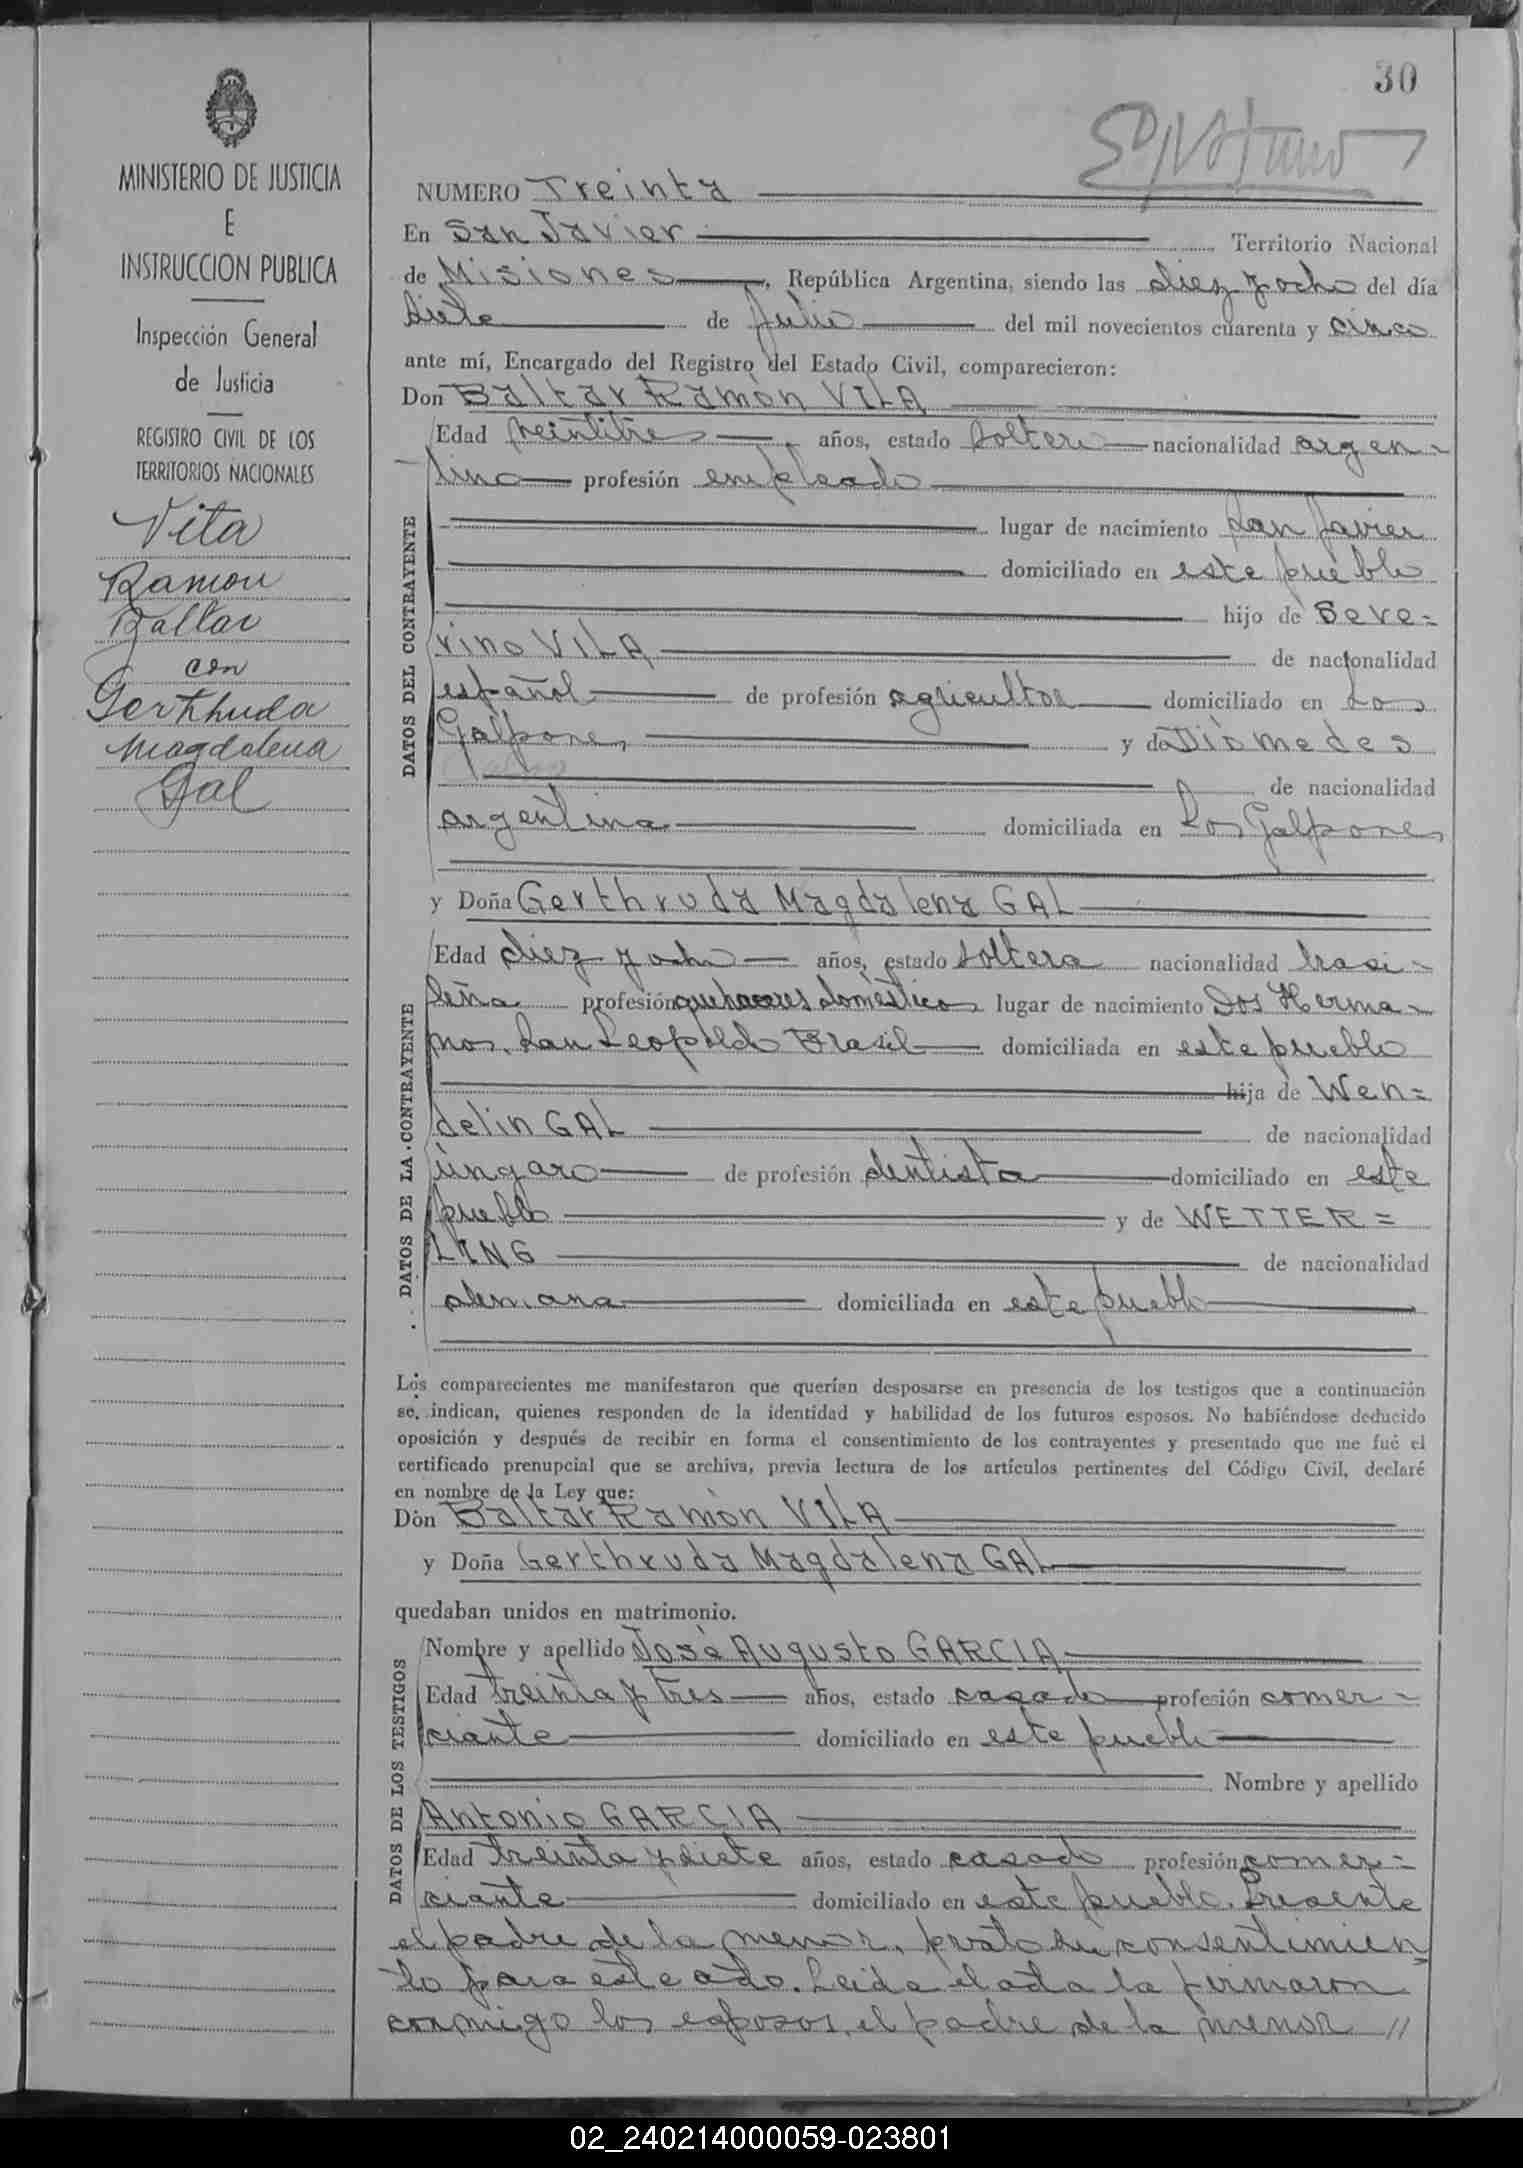 30
MINISTERIO DE JUSTICIA
E
INSTRUCCION PUBLICA
Inspección General
de Justicia
REGISTRO CIVIL DE LOS
TERRITORIOS NACIONALES
Vila
Ramon
Baltar
con
Gerthruda
Magdalena
Gal
NUMERO Treinta
En San Javier Territorio Nacional
de Misiones, República Argentina, siendo las diez y ocho del día
siete de Julio del mil novecientos cuarenta y cinco
ante mí, Encargado del Registro del Estado Civil, comparecieron:
Don Baltar Ramòn VILA
DATOS DEL CONTRAYENTE
Edad veintitres, años, estado soltero nacionalidad argen-
tino profesión empleado
lugar de nacimiento San Javier
domiciliado en este pueblo
hijo de Seve=
rino VILA de nacionalidad
español de profesión agricultor domiciliado en Los
Galpones y de Diomedes
de nacionalidad
argentina domiciliada en Los Galpones
y Doña Gerthruda Magdalena GAL
DATOS DE LA CONTRAYENTE
Edad diez y ocho años, estado soltera nacionalidad brasi-
leña profesión quehaceres domésticos lugar de nacimiento Dos Herma-
nos. San Leopoldo Brasil domiciliada en este pueblo
hija de Wen=
delin GAL de nacionalidad
úngaro de profesión dentista domiciliado en este
pueblo y de WETTER=
LING de nacionalidad
alemana domiciliada en este pueblo
Los comparecientes me manifestaron que querían desposarse en presencia de los testigos que a continuación
se indican, quienes responden de la identidad y habilidad de los futuros esposos. No habiéndose deducido
oposición y después de recibir en forma el consentimiento de los contrayentes y presentado que me fué el
certificado prenupcial que se archiva, previa lectura de los artículos pertinentes del Código Civil, declaré
en nombre de la Ley que:
Dòn Baltar Ramòn VILA
y Doña Gerthruda Magdalena GAL
quedaban unidos en matrimonio.
DATOS DE LOS TESTIGOS
Nombre y apellido Josè Augusto GARCIA
Edad treinta y tres años, estado casado profesión comer-
ciante domiciliado en este pueblo
Nombre y apellido
Antonio GARCIA
Edad treinta y siete años, estado casado profesión comer=
ciante domiciliado en este pueblo. Presente
el padre de la menor, prestò su consentimien
to para este acto. Leida el acta la firmaron
conmigo los esposos, el padre de la menor //
02_240214000059-023801